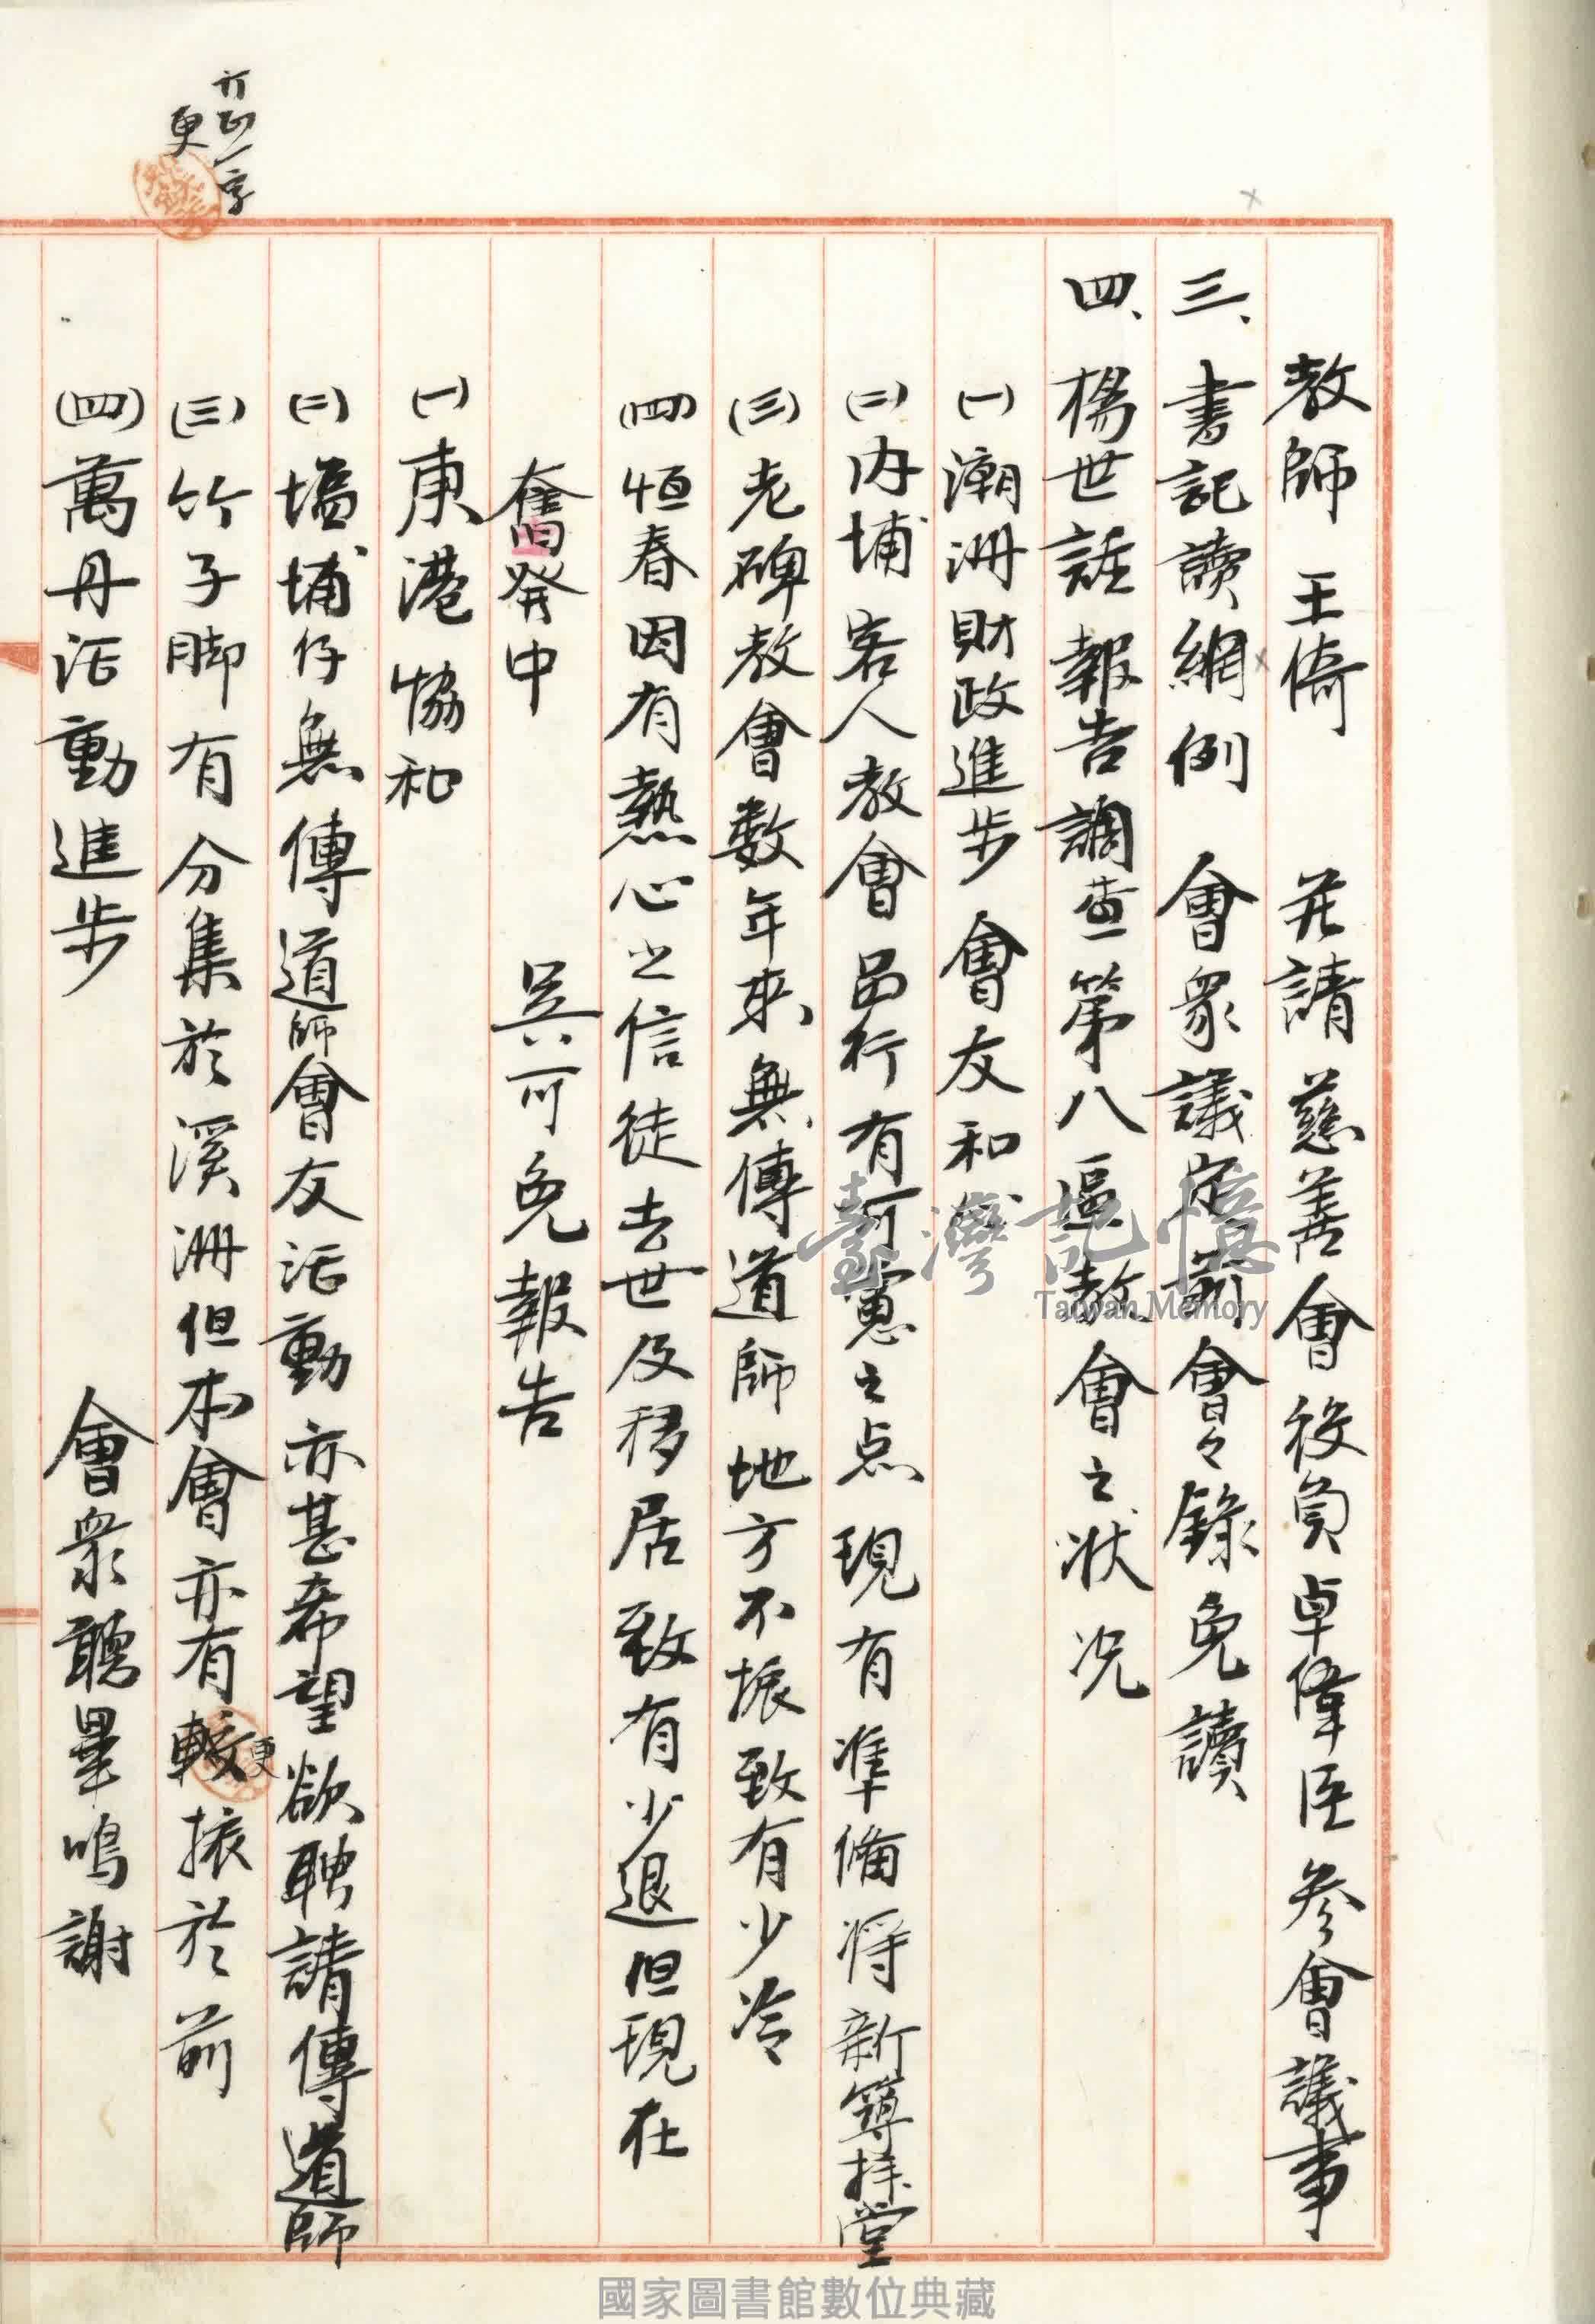 教師 王倚 並請慈善會役員卓偉臣參會議事
三、書記讀網例 會眾議定前會々錄免讀
四、楊世註報告調查第八區教會之狀况
(一)潮洲財政進步會友和
(二)内埔客人教會品行有可慮之点現有準備将新築拜堂
(三)老碑教會數年來無傳道師地方不振致有少冷
(四)恒春因有熱心之信徒去世及移居致有少退但現在
奮發中 吳可免報告
(一)東港協和
(二)塩埔仔無傳道師會友活動亦甚希望欲聘請傳道師
(三)竹子脚有分集於溪洲但本會亦有較振於前
更
(四)萬丹活動進步 會眾聽畢鳴謝
訂正一字
更
臺灣記憶
Taiwan Memory
國家圖書館數位典藏